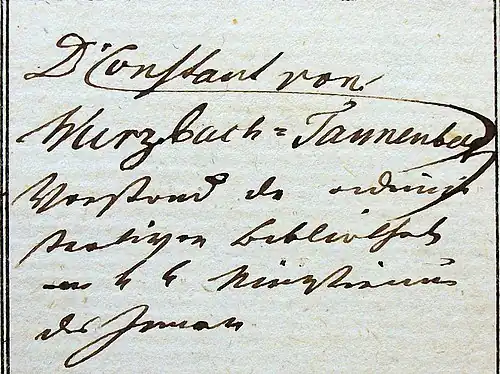 Dr Constant von
Wurzbach=Tannenberg
Vorstand der administra
tiven Bibliothek
im k k Ministerium
des Innern